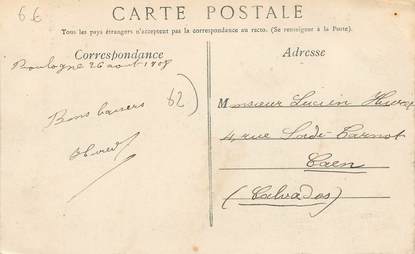 6€
CARTE POSTALE
Tous les pays étrangers n'acceptent pas la correspondance au recto. (Se renseigner à la Poste).
Correspondance
Adresse
Boulogne 26 août 1908
62
Bons baisers
Monsieur Lucien
4, rue Sadi-Carnot
Caen
(Calvados)